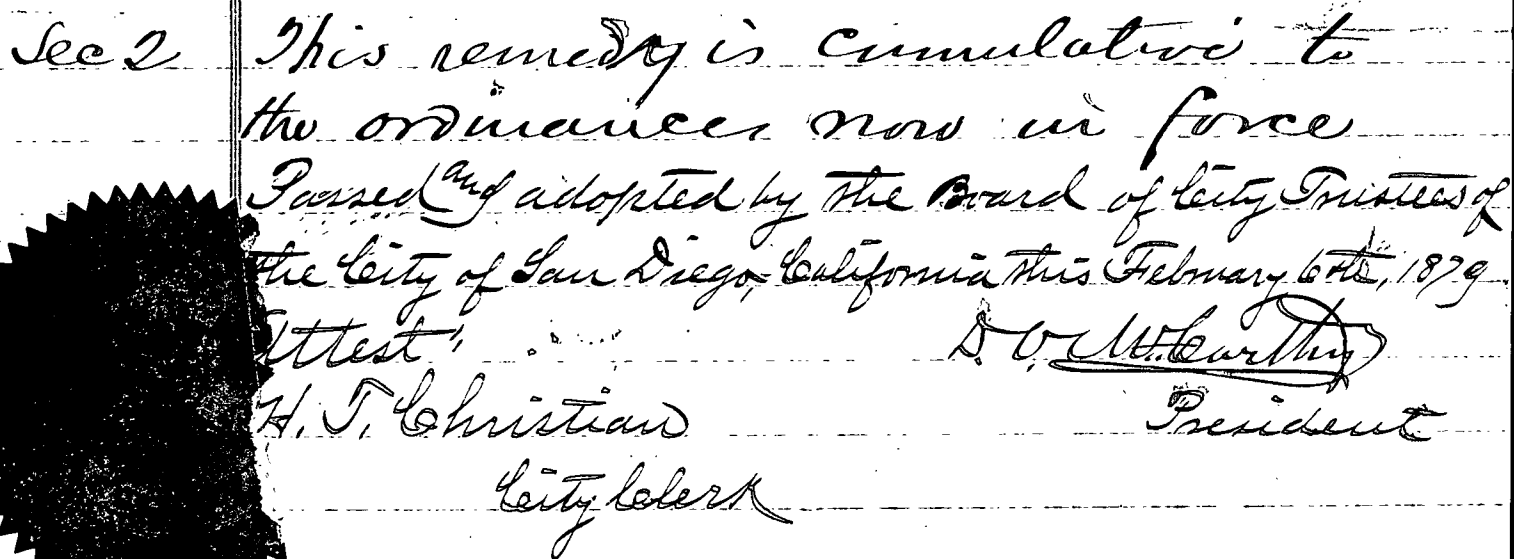 Sec 2 This remedy is cumulative to
the ordinances now in force
Passed and adopted by the Board of City Trustees of
the City of San Diego, California this February 6th, 1879
Attest
D. O. McCarthy
H. T. Christian
President
City Clerk